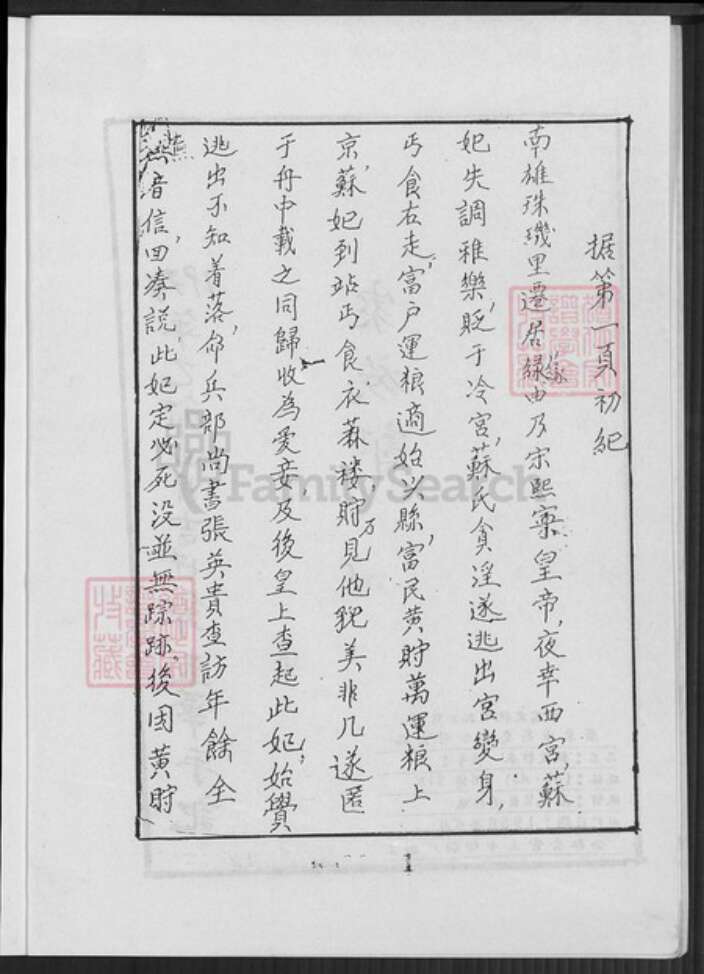 据第一頁初紀
南雄珠璣里遷居緣由乃宋熙寧皇帝,夜幸西宮,蘇
妃失調雅樂,貶于冷宮,蘇氏貪淫遂逃出宮變身,
丐食右走,富户運粮適始兴縣,富民黄貯萬運粮上
京,蘇妃到站丐食,衣蔴褸,貯万見他貌美非凡遂匿
于舟中載之同歸收為爱妾,及後皇上查起此妃,始覺
逃出不知着落,命兵部尚書張英貴查訪年餘全
無音信,回奏說,此妃定必死没並無踪跡,後因黄貯
FamilySearch
1